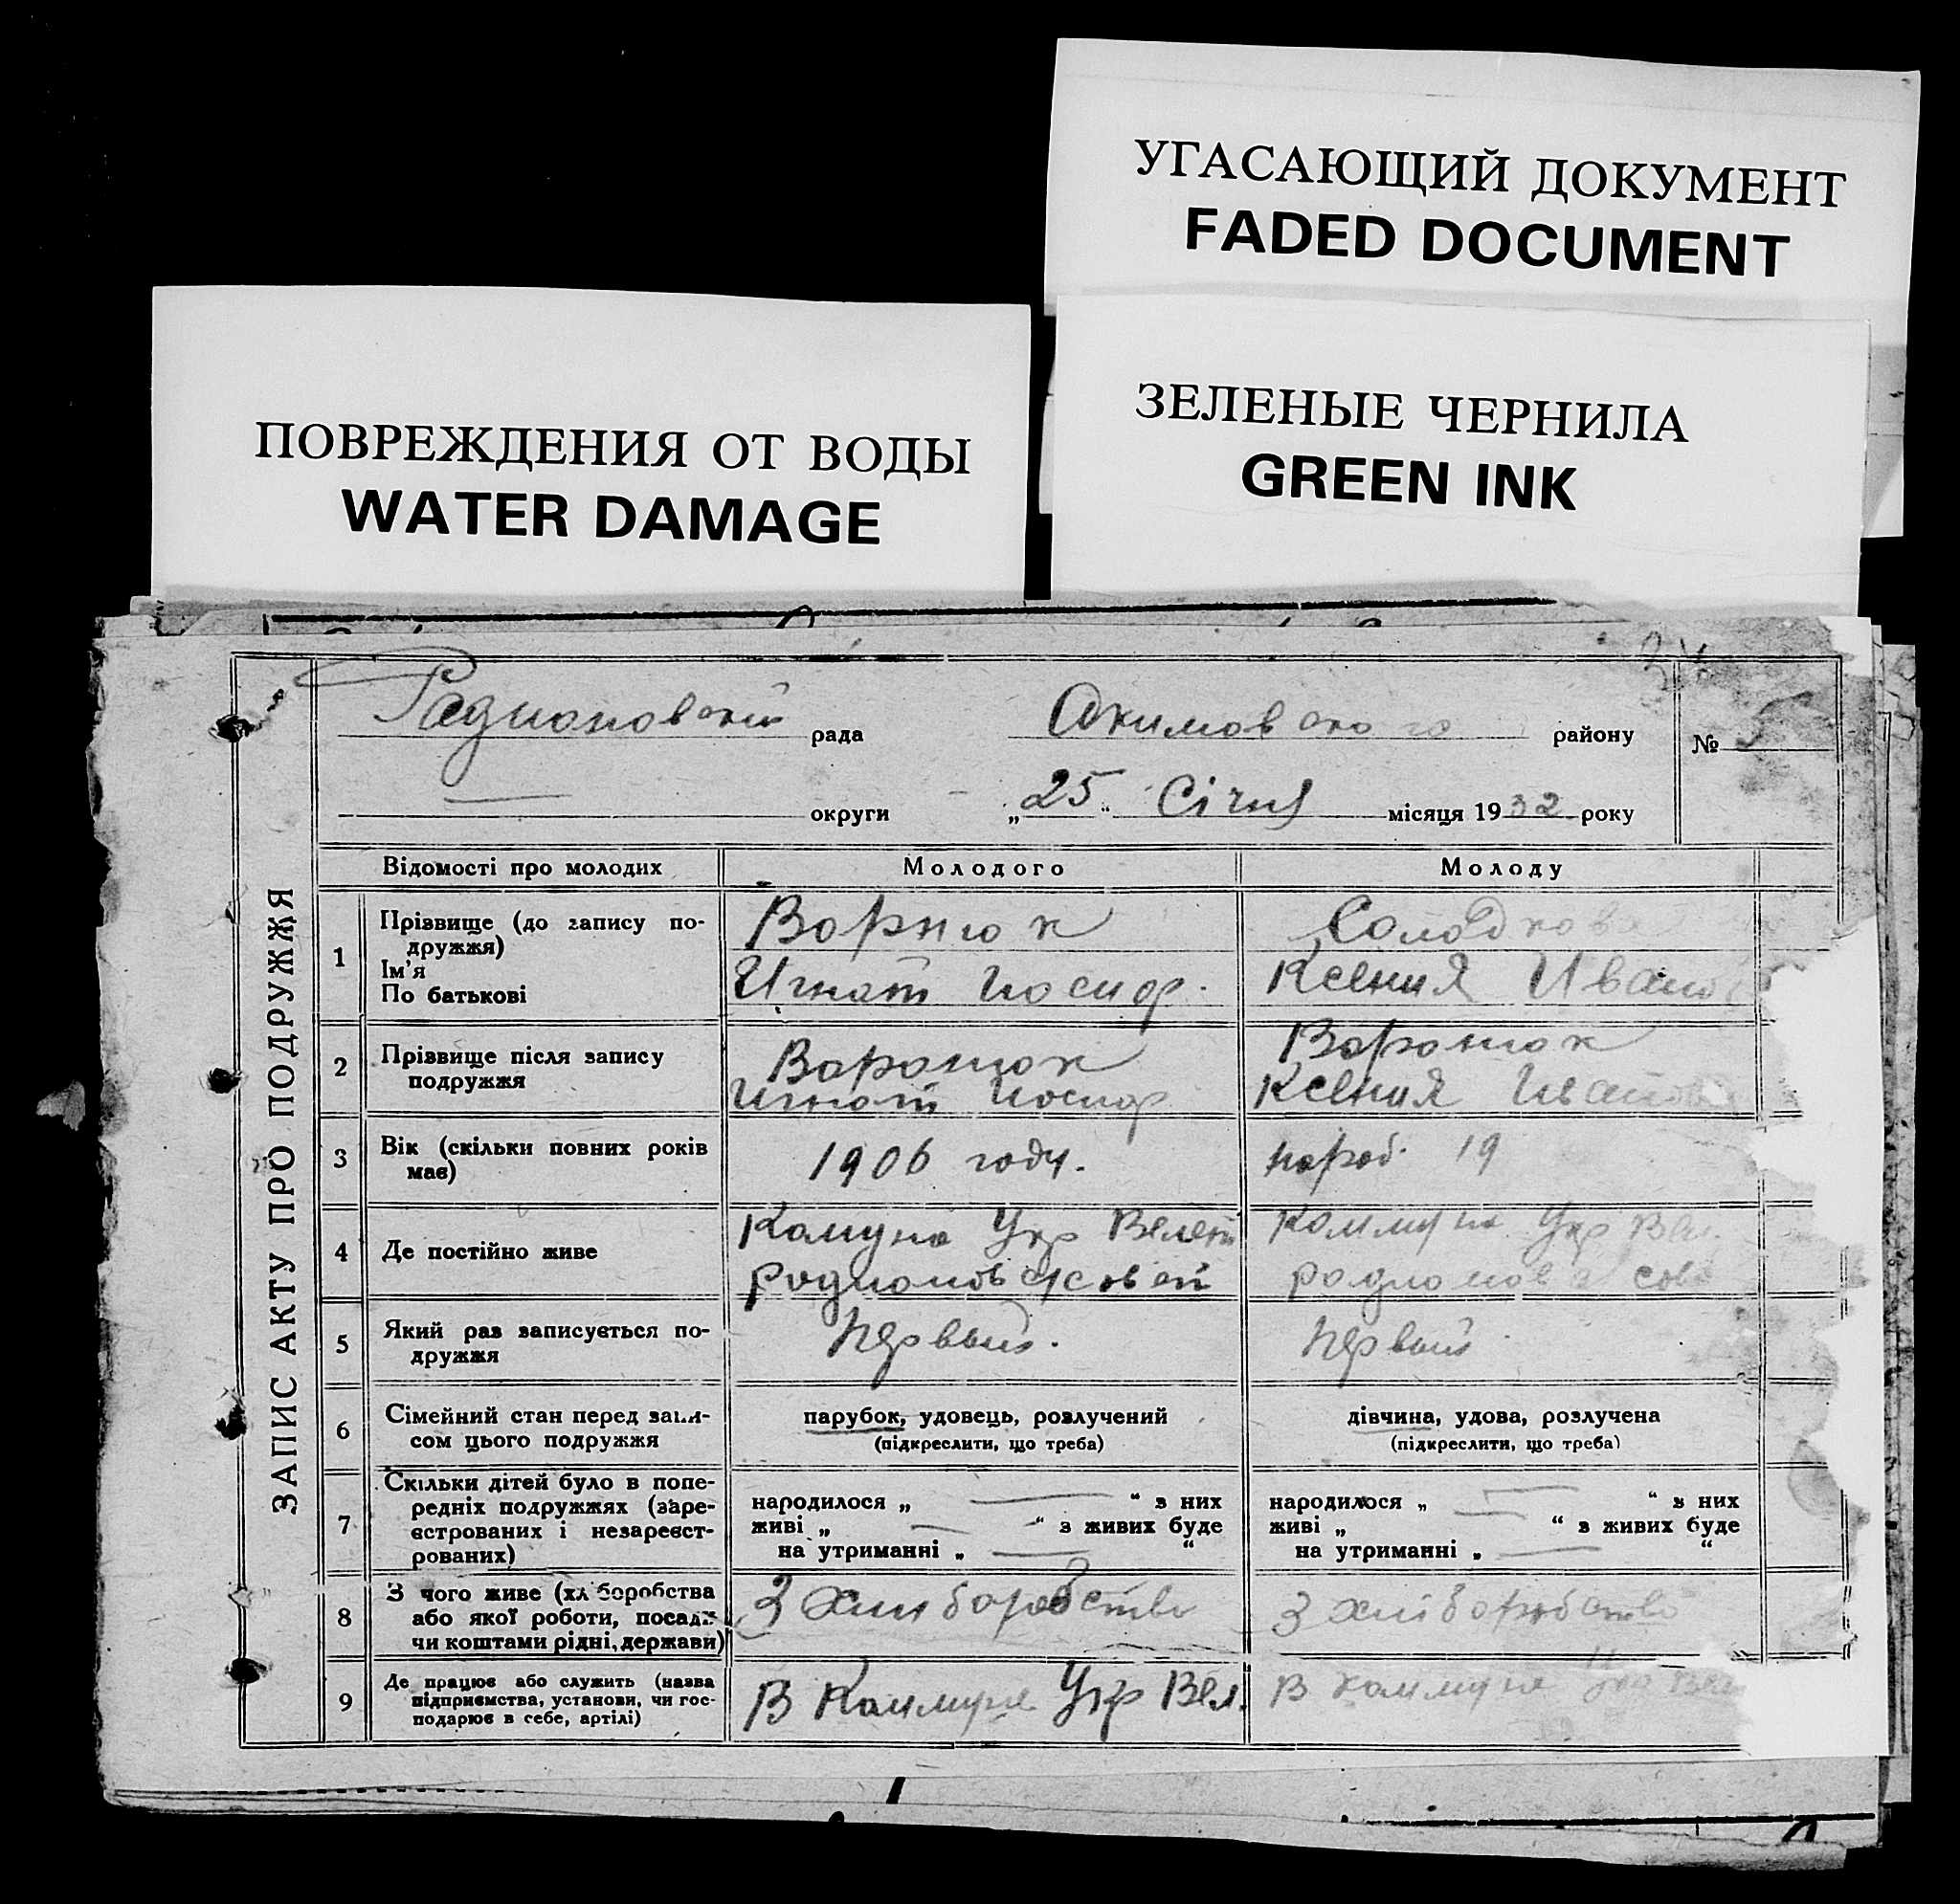 УГАСАЮЩИЙ ДОКУМЕНТ
FADED DOCUMENT
ЗЕЛЕНЫЕ ЧЕРНИЛА
GREEN INK
ПОВРЕЖДЕНИЯ ОТ ВОДЫ
WATER DAMAGE
ЗАПИС АКТУ ПРО ПОДРУЖЖЯ
рада Акимовского району №
округи „25“ Січня місяця 1932 року
Відомості про молодих Молодого Молоду
1 Прізвище (до запису по-
дружжя)
Ім'я
По батькові
Ворнюк
Игнат Иосиф.
Ксения
2 Прізвище після запису
подружжя
Воронюк
Игнат Иосиф
Воронюк
Ксения
3 Вік (скільки повних років
має)
1906 году.
19
4 Де постійно живе
Комуна Укр
Коммуна Укр Вел.
5 Який раз записується по-
дружжя
Первый.
Первый
6 Сімейний стан перед запи-
сом цього подружжя
парубок, удовець, розлучений
(підкреслити, що треба)
дівчина, удова, розлучена
(підкреслити, що треба)
7 Скільки дітей було в попе-
редніх подружжях (заре-
єстрованих і незареєст-
рованих)
народилося „ — “ з них
живі „ — “ з живих буде
на утриманні „ — “
народилося „ — “ з них
живі „ “ з живих буде
на утриманні „ — “
8 З чого живе (хліборобства
або якої роботи, посади
чи коштами рідні, держави)
З
З
9 Де працює або служить (назва
підприємства, установи, чи гос-
подарює в себе, артілі)
В Коммуне Укр Вел.
В коммуне